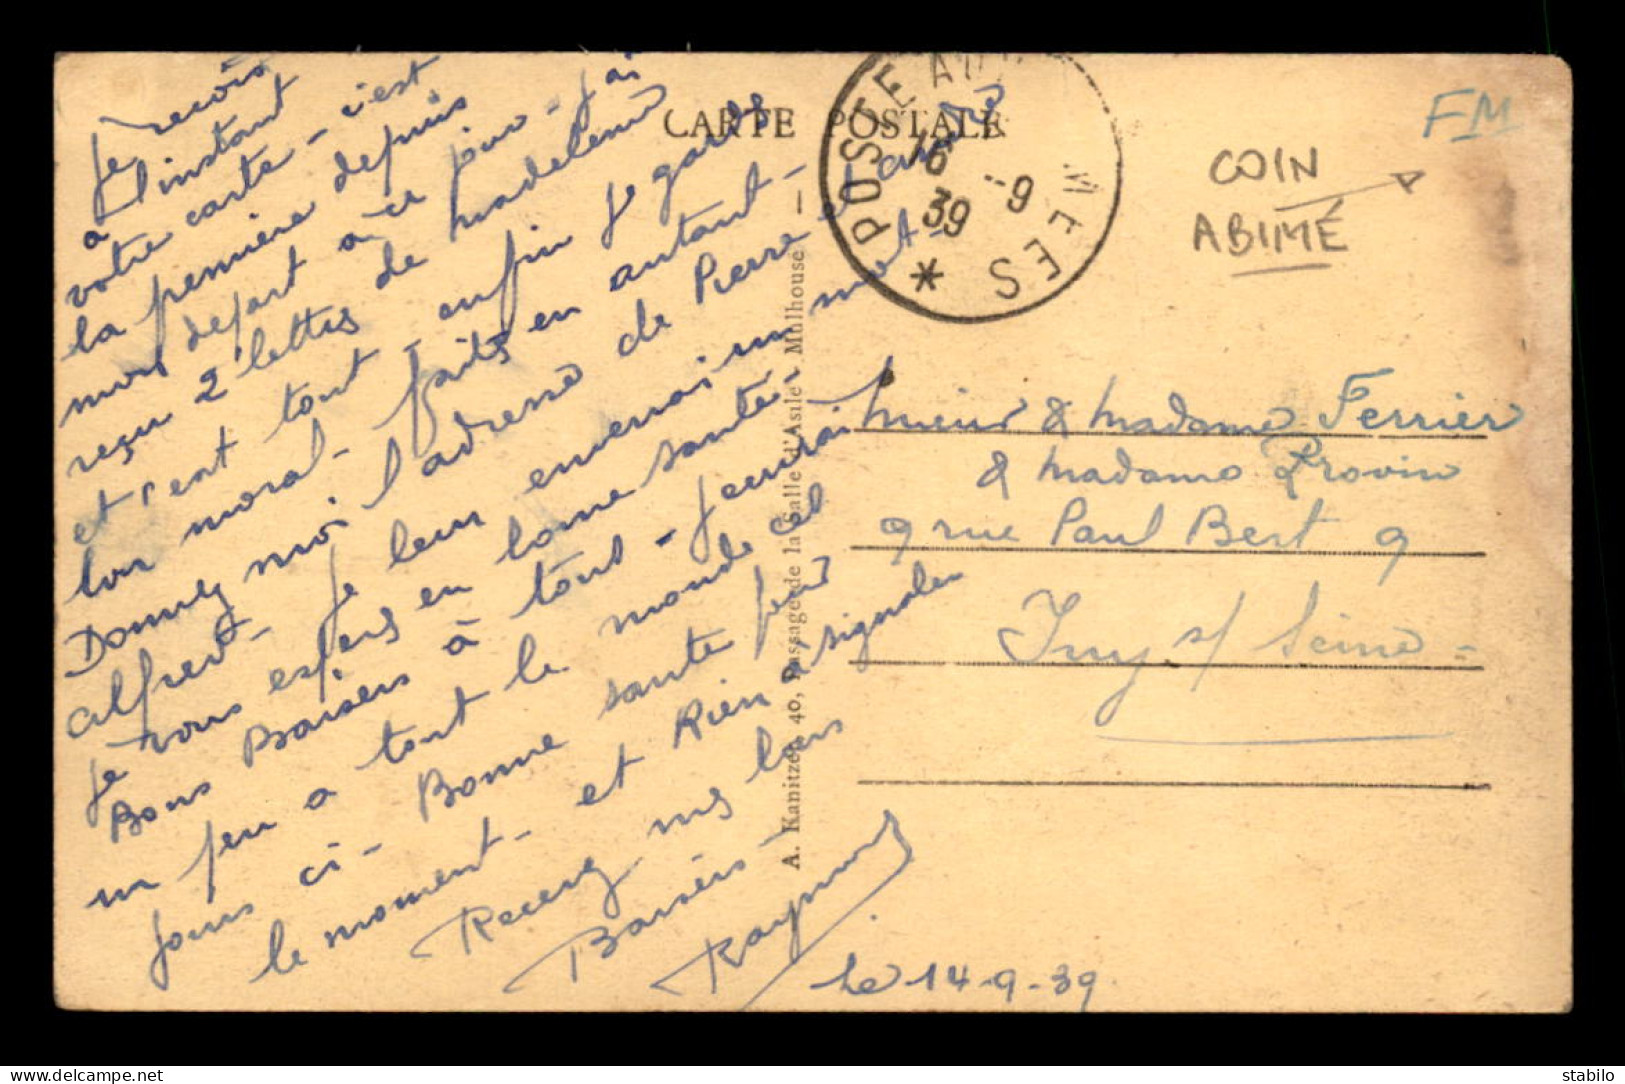 CARTE POSTALE
FM
COIN
ABIMÉ
* POSTE AUX ARMEES
16 -9
39
Je reçois
à l'instant
votre carte - c'est
la première depuis
mon départ à ce jour - j'ai
reçu 2 lettres de Madeleine
et c'est tout - enfin je garde
bon moral - faites en autant -
Donnez moi l'adresse de Pierre et André
Alfred - Je leur enverrai un mot -
Je vous espère en bonne santé -
Bons Baisers à tous - J'écrirai
un peu à tout le monde ces
jours ci - Bonne santé pour
le moment - et Rien à signaler
Recevez mes bons
Baisers -
Raymond
Le 14-9-39
A. Kanitzer, 40, Passage de la Salle d'Asile - Mulhouse
Msieur & Madame Ferrier
& Madame Provin
9 rue Paul Bert 9
Ivry s/ Seine -
stabilo